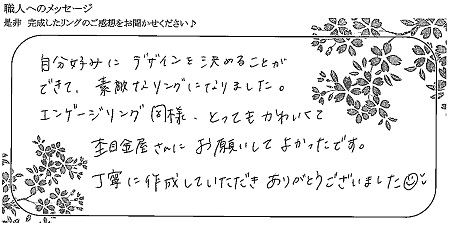 職人へのメッセージ
是非 完成したリングのご感想をお聞かせください♪
自分好みに デザインを決めることが
できて、素敵なリングになりました。
エンゲージリング同様、とってもかわいくて
杢目金屋さんに お願いして よかったです。
丁寧に作成していただき ありがとうございました☺